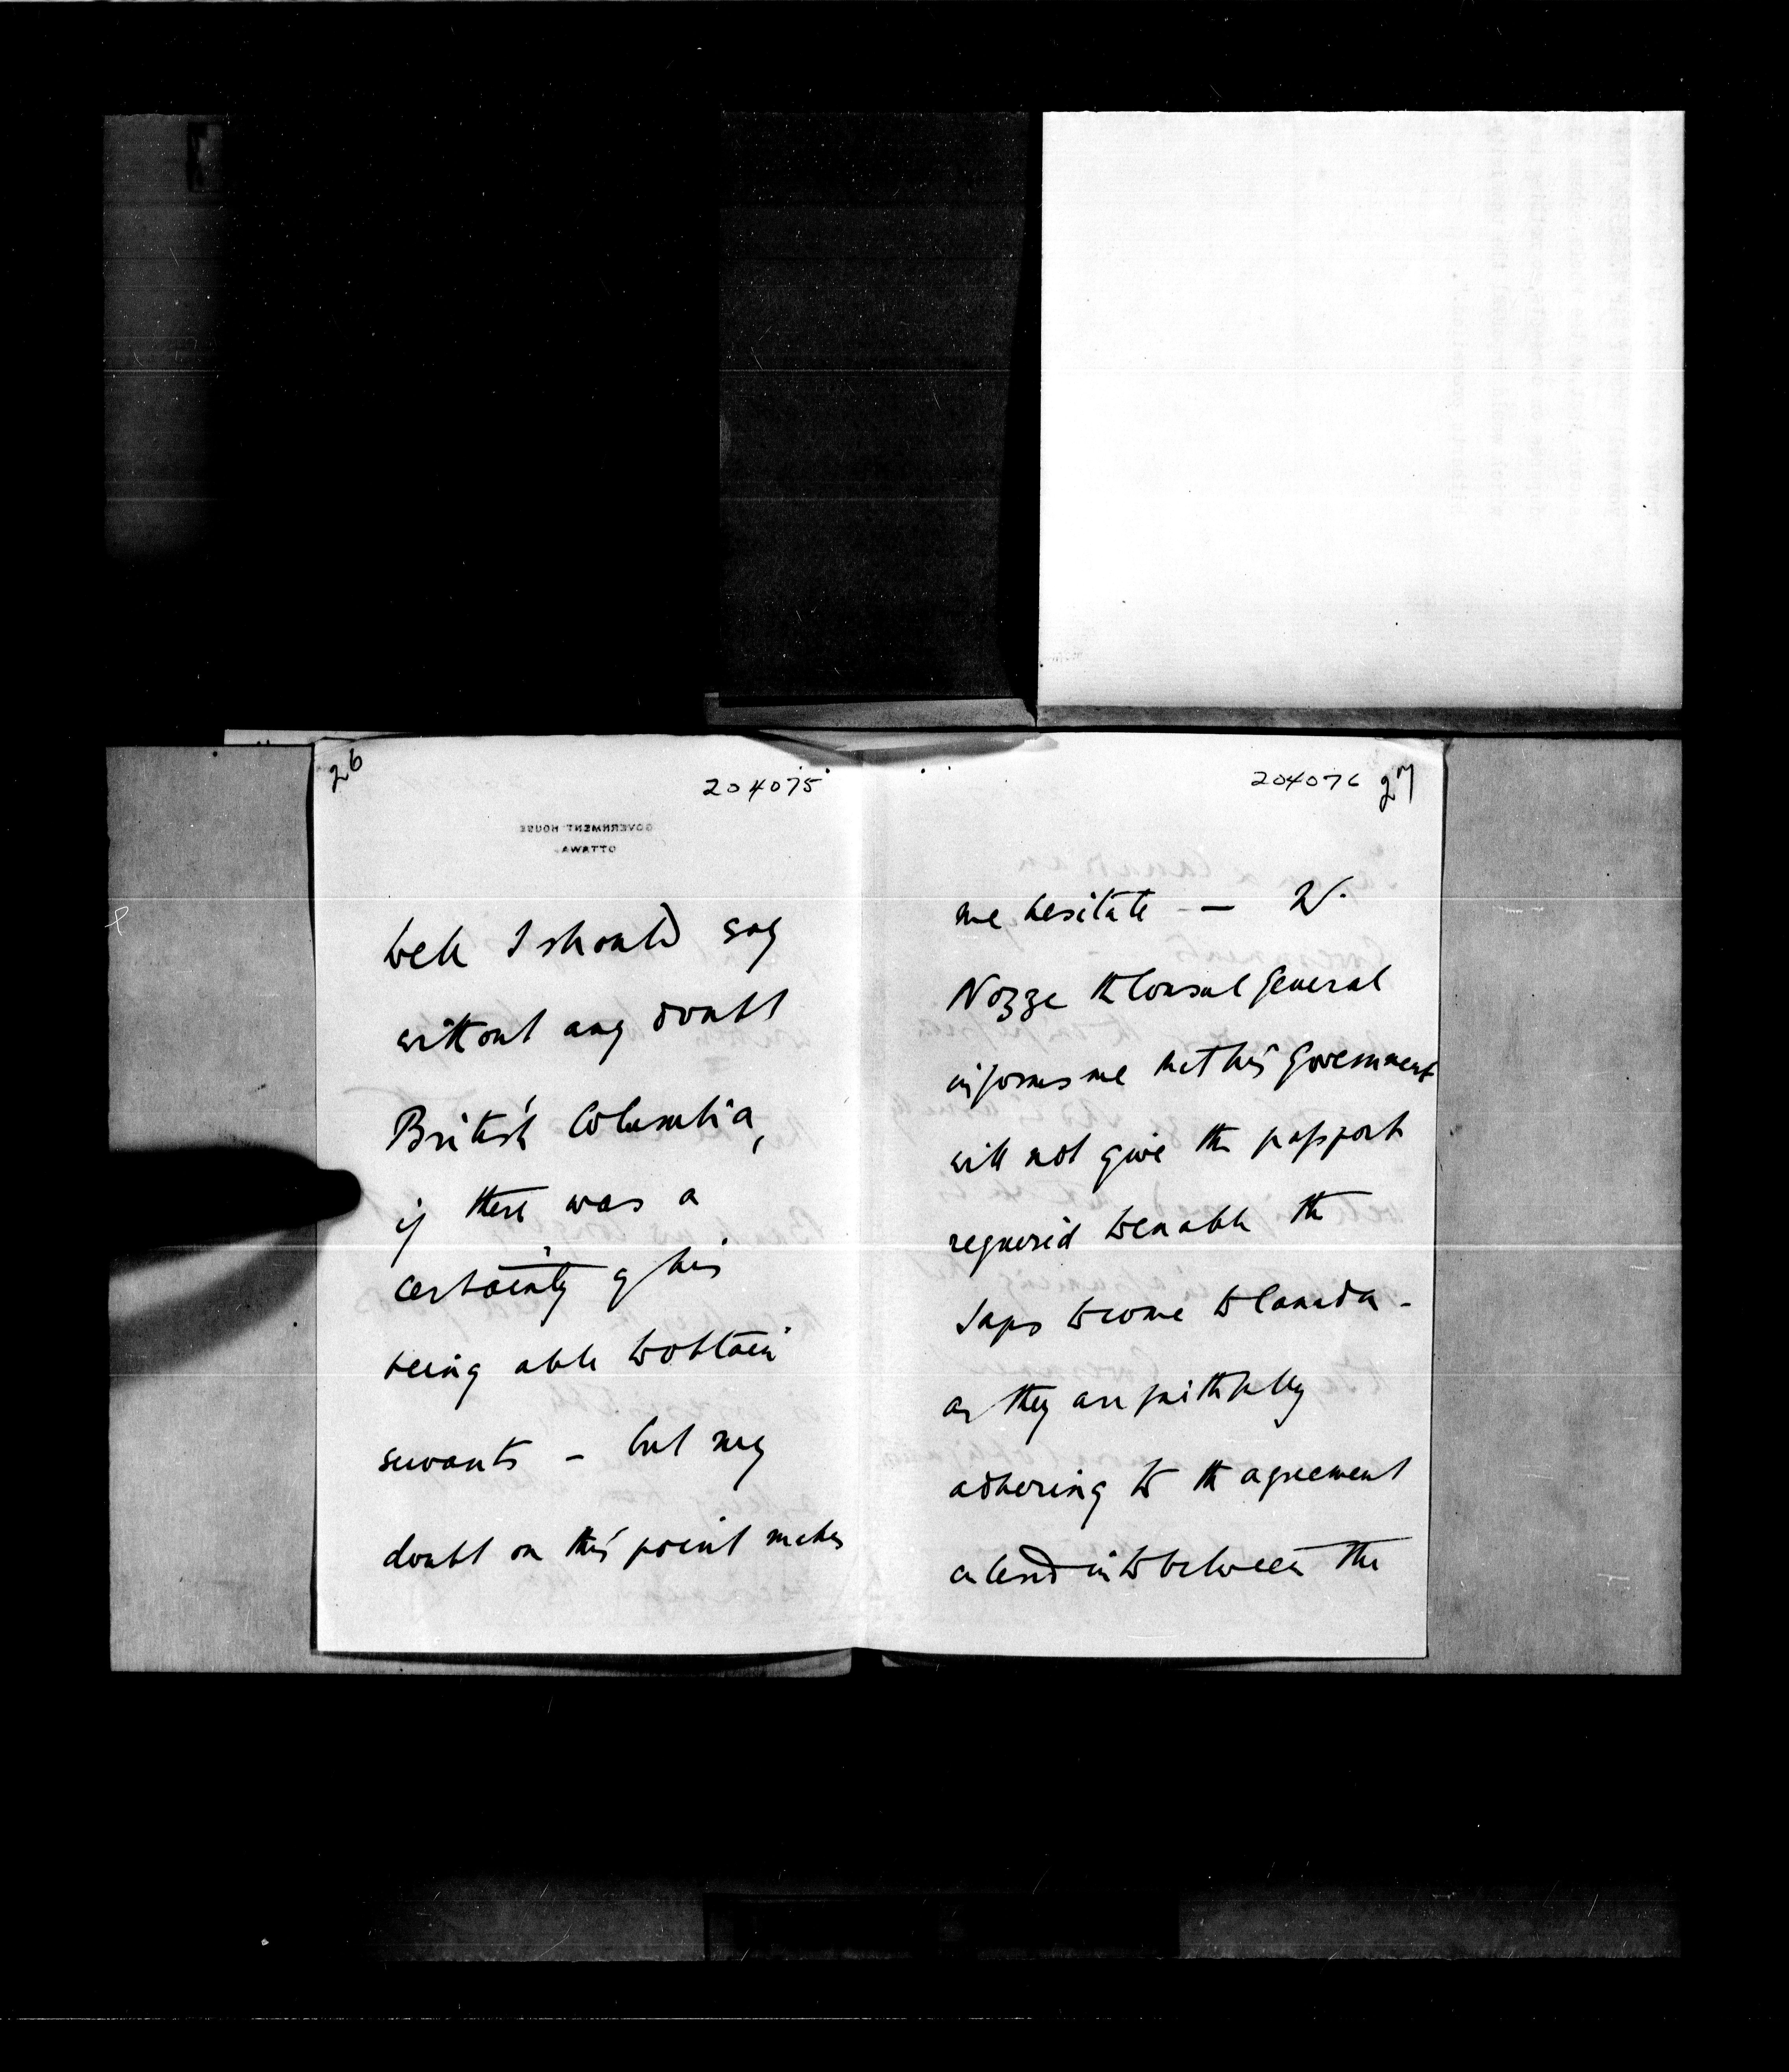 26
204075
GOVERNMENT HOUSE
OTTAWA
well I should say
without any doubt
British Columbia,
if there was a
certainty of his
being able to obtain
servants – but my
doubt on this point makes
204076 27
me hesitate –
Nozze the Consul General
informs me that his Government
will not give the passport
required to enable the
Japs to come to Canada –
as they are faithfully
adhering to the agreement
entered into between the